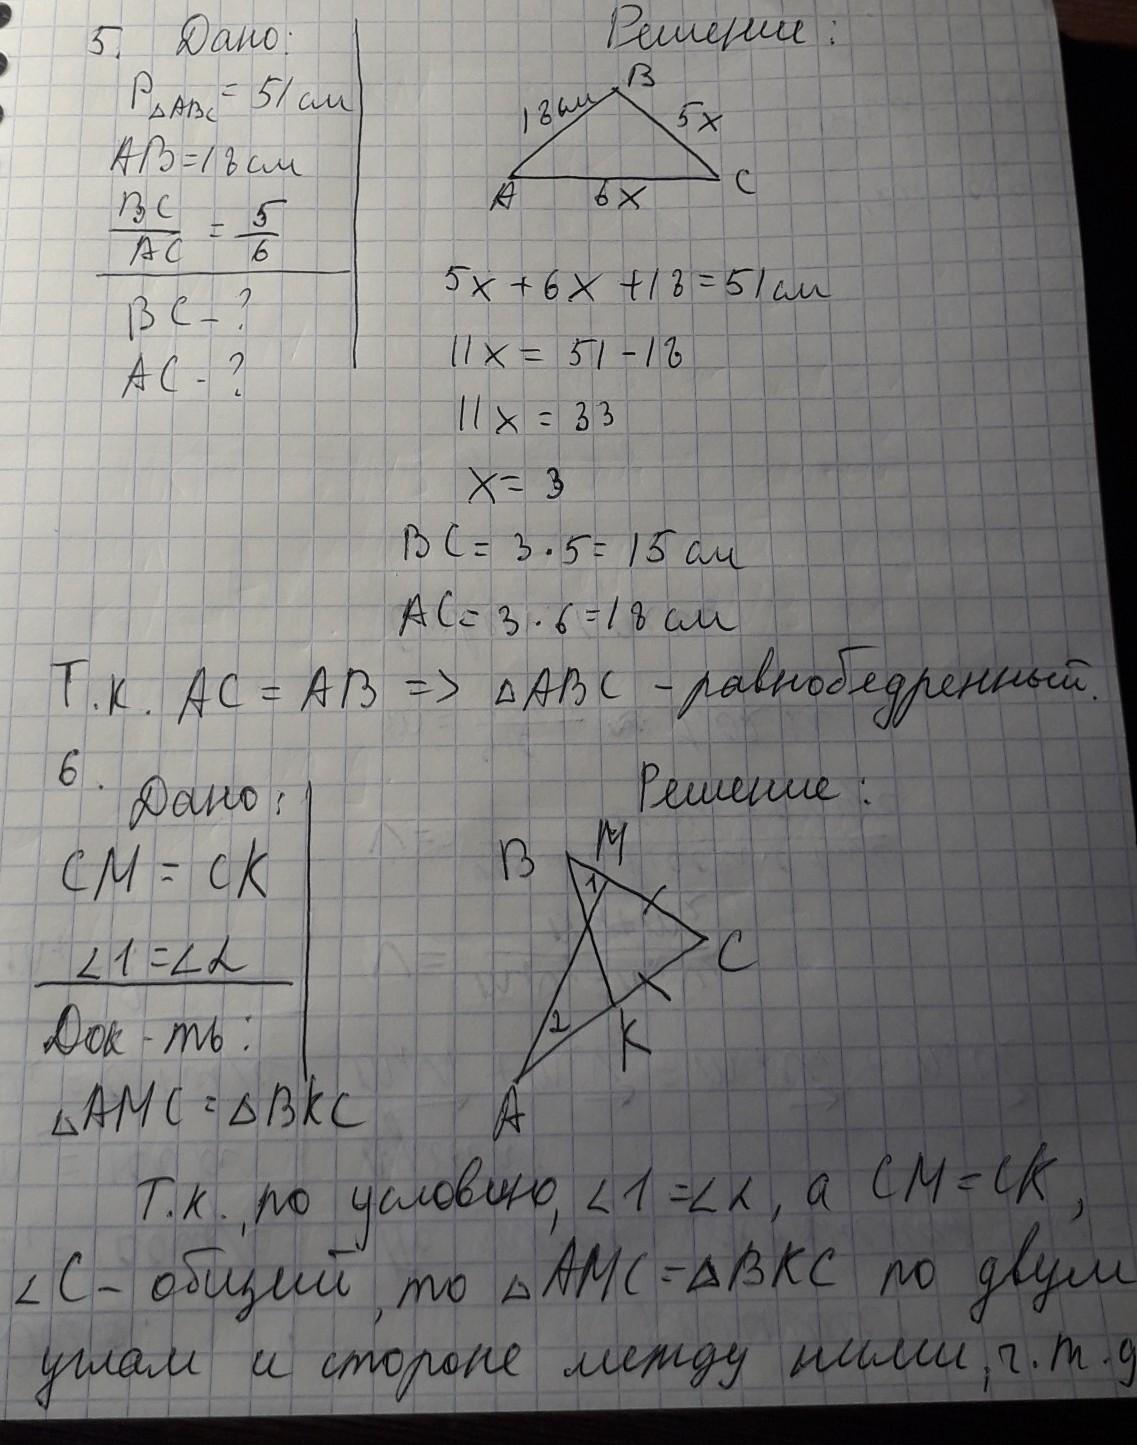 5. Дано:
P△ABC = 51 см
AB = 18 см
BC/AC = 5/6
BC - ?
AC - ?
Решение:
B
18 см
5x
A
6x
C
5x + 6x + 18 = 51 см
11x = 51 - 18
11x = 33
x = 3
BC = 3 · 5 = 15 см
AC = 3 · 6 = 18 см
Т.к. AC = AB => △ABC - равнобедренный.
6.
Дано:
CM = CK
∠1 = ∠2
Док-ть:
△AMC = △BKC
Решение:
B M
1
C
2
K
A
Т.к., по условию, ∠1 = ∠2, а CM = CK,
∠C - общий, то △AMC = △BKC по двум
углам и стороне между ними, ч.т.д